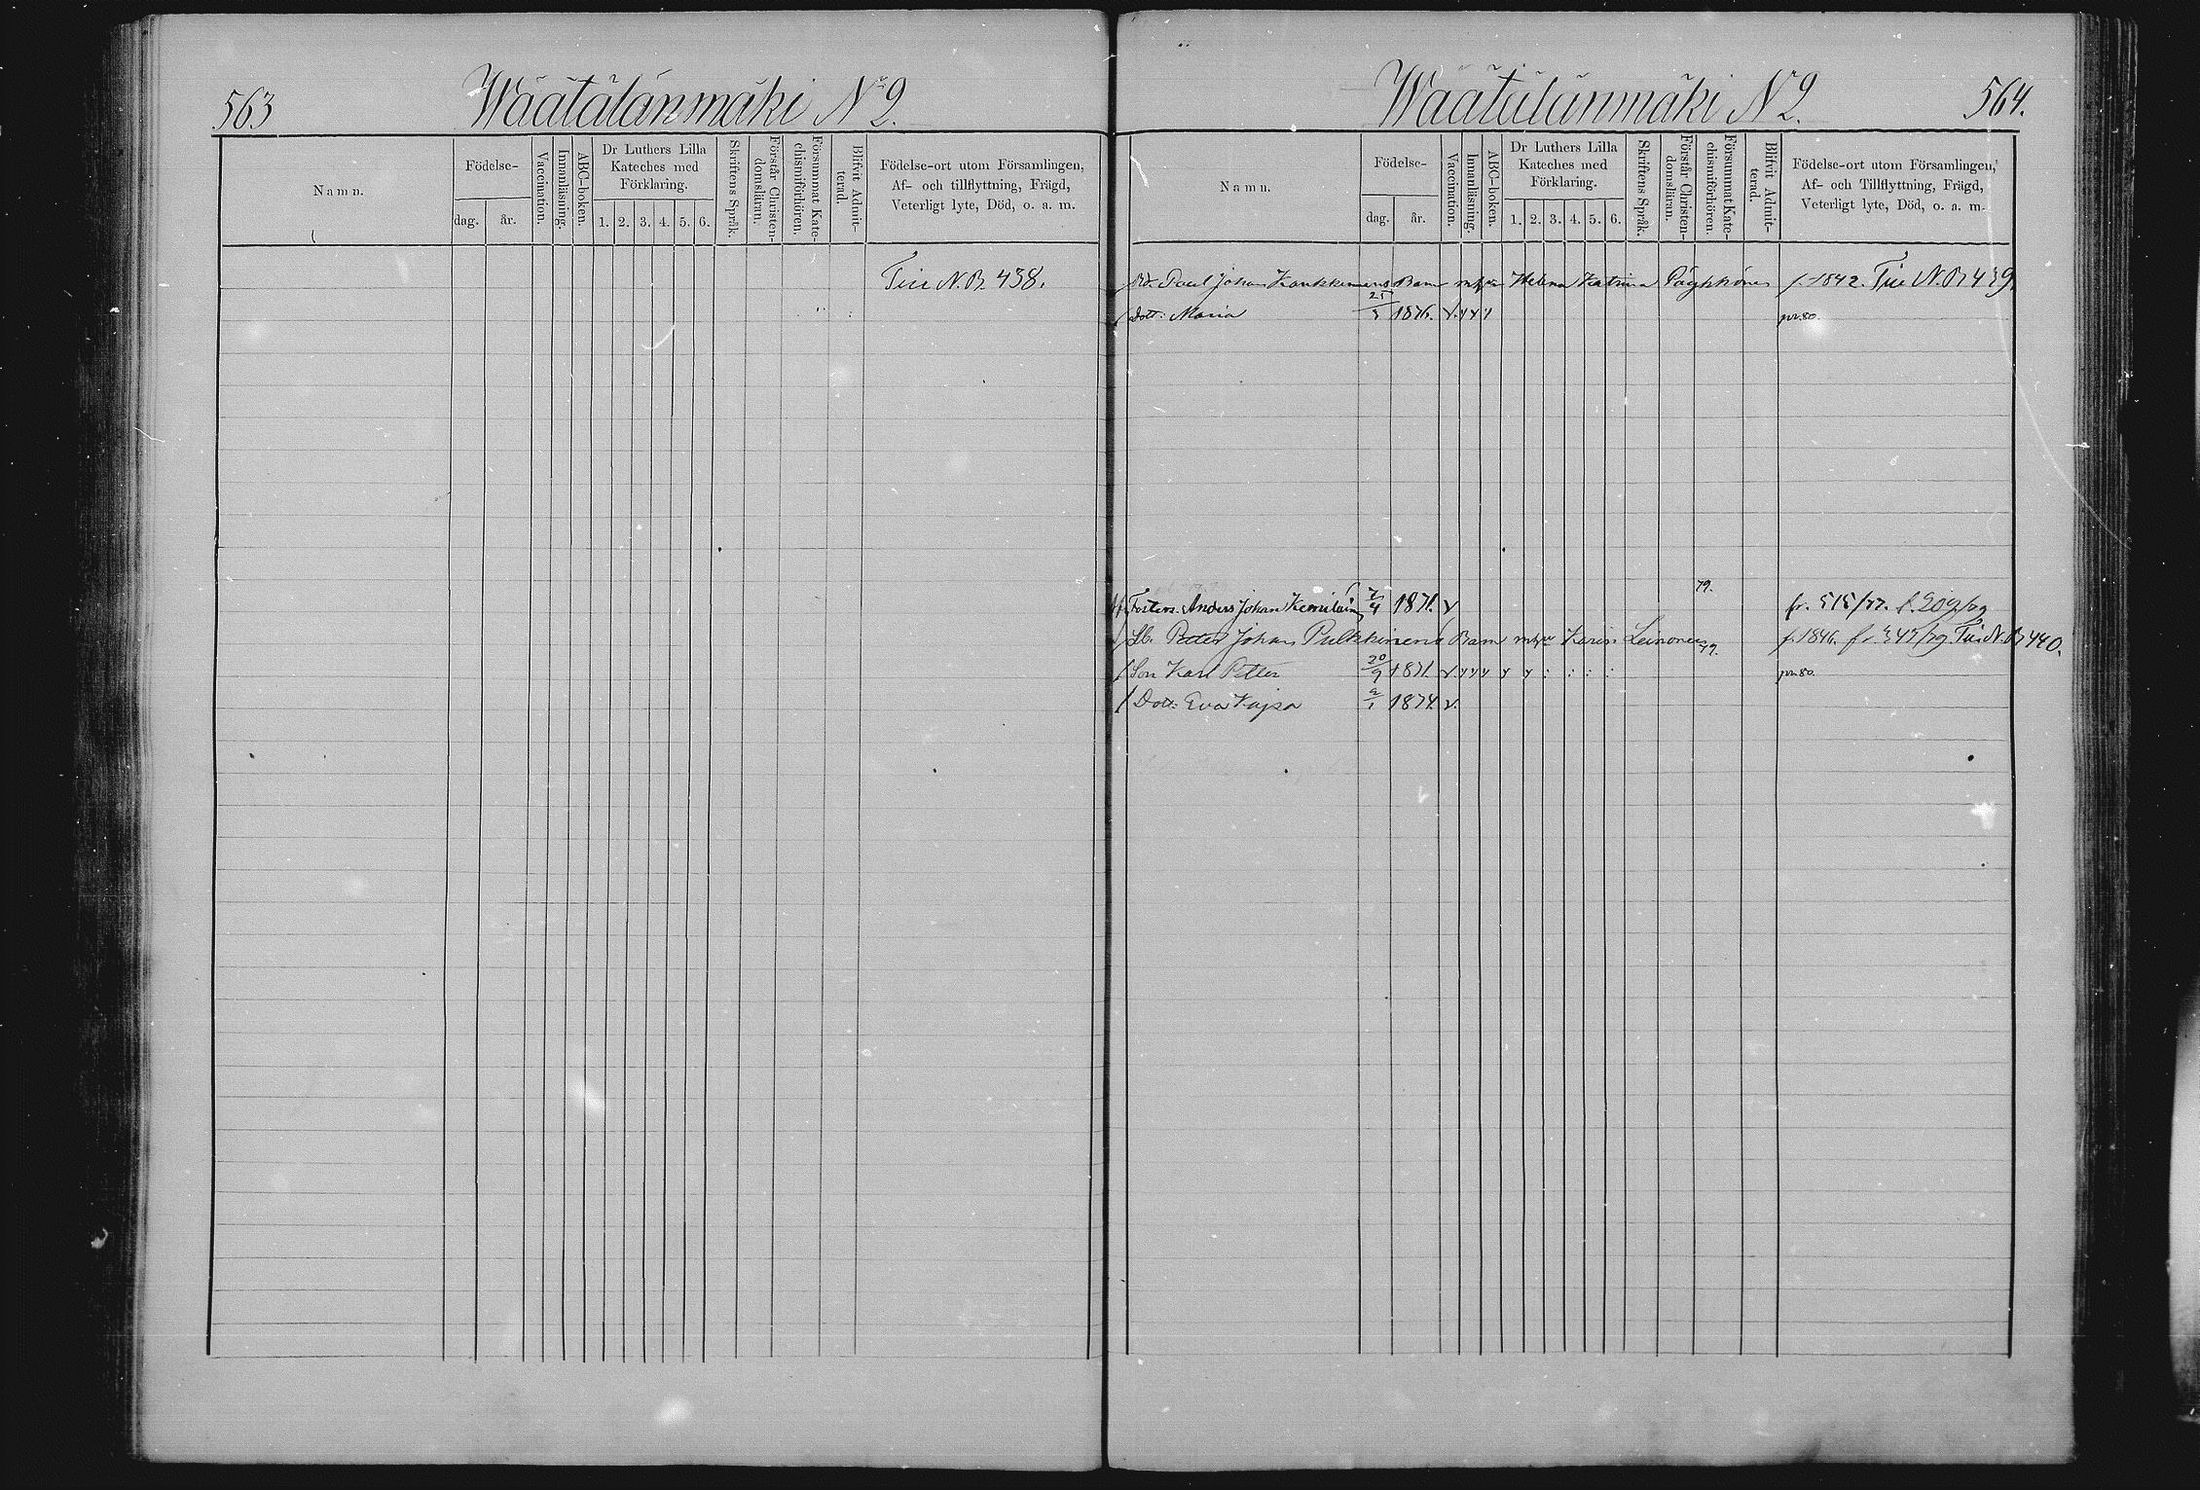 563
Wäätälänmäki N 2.
Namn.
Födelse-
dag.
år.
Vaccination.
Innanläsning.
ABC-boken.
Dr Luthers Lilla
Kateches med
Förklaring.
1. 2. 3. 4. 5. 6.
Skriftens Språk.
Förstår Christen-
domsläran.
Försummat Kate-
chismiförhören.
Blifvit Admit-
terad.
Födelse-ort utom Församlingen,
Af- och tillflyttning, Frägd,
Veterligt lyte, Död, o. a. m.
N.B. 438.
Wäätälänmäki N 2.
564.
Namn.
Födelse-
dag.
år.
Vaccination.
Innanläsning.
ABC-boken.
Dr Luthers Lilla
Kateches med
Förklaring.
1. 2. 3. 4. 5. 6.
Skriftens Språk.
Förstår Christen-
domsläran.
Försummat Kate-
chismiförhören.
Blifvit Admit-
terad.
Födelse-ort utom Församlingen,
Af- och Tillflyttning, Frägd,
Veterligt lyte, Död, o. a. m.
Paul Johan Barn Helena Katrina f. 1842. N.B. 439.
Dott: Maria 1876.
79.
Anders Johan 1871. fr. 515/77.
Petter Johan Pulkkinens Barn Leinonen 79. f. 1846. N.B. 440.
Son Karl Petter 20/9 1871
Dott: Eva Kajsa 1874